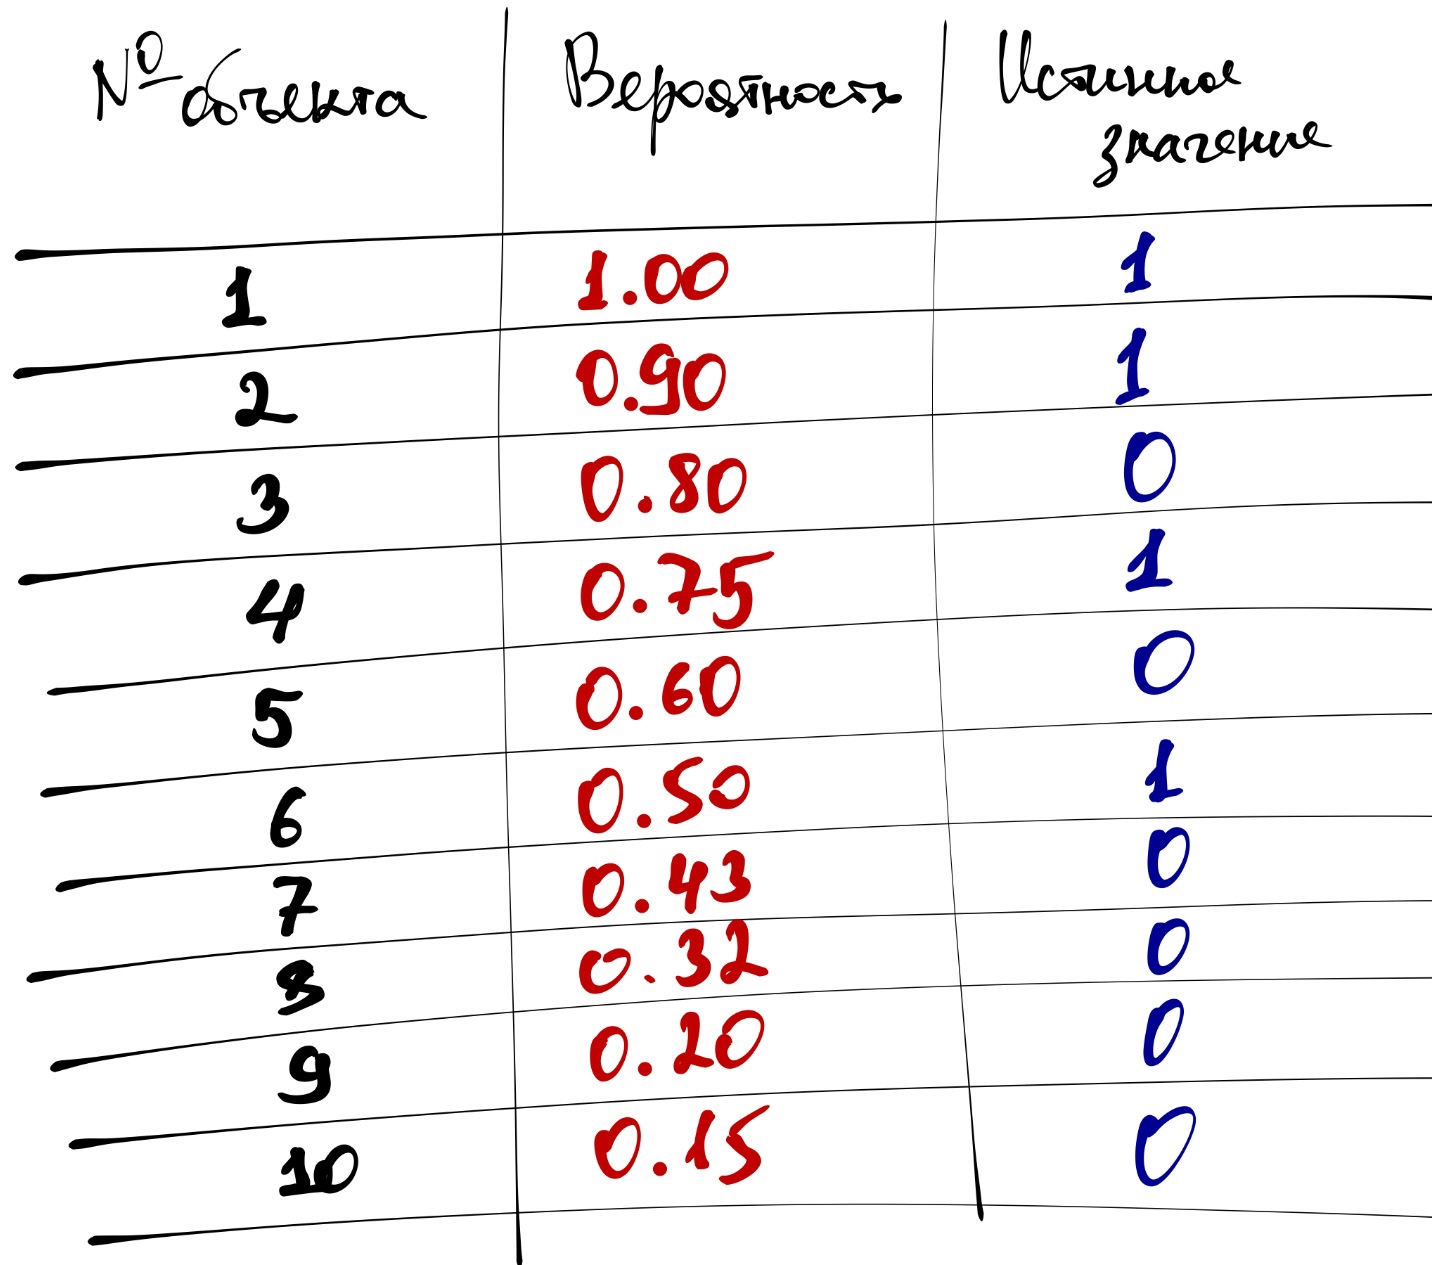 № объекта Вероятность Истинное значение
1 1.00 1
2 0.90 1
3 0.80 0
4 0.75 1
5 0.60 0
6 0.50 1
7 0.43 0
8 0.32 0
9 0.20 0
10 0.15 0